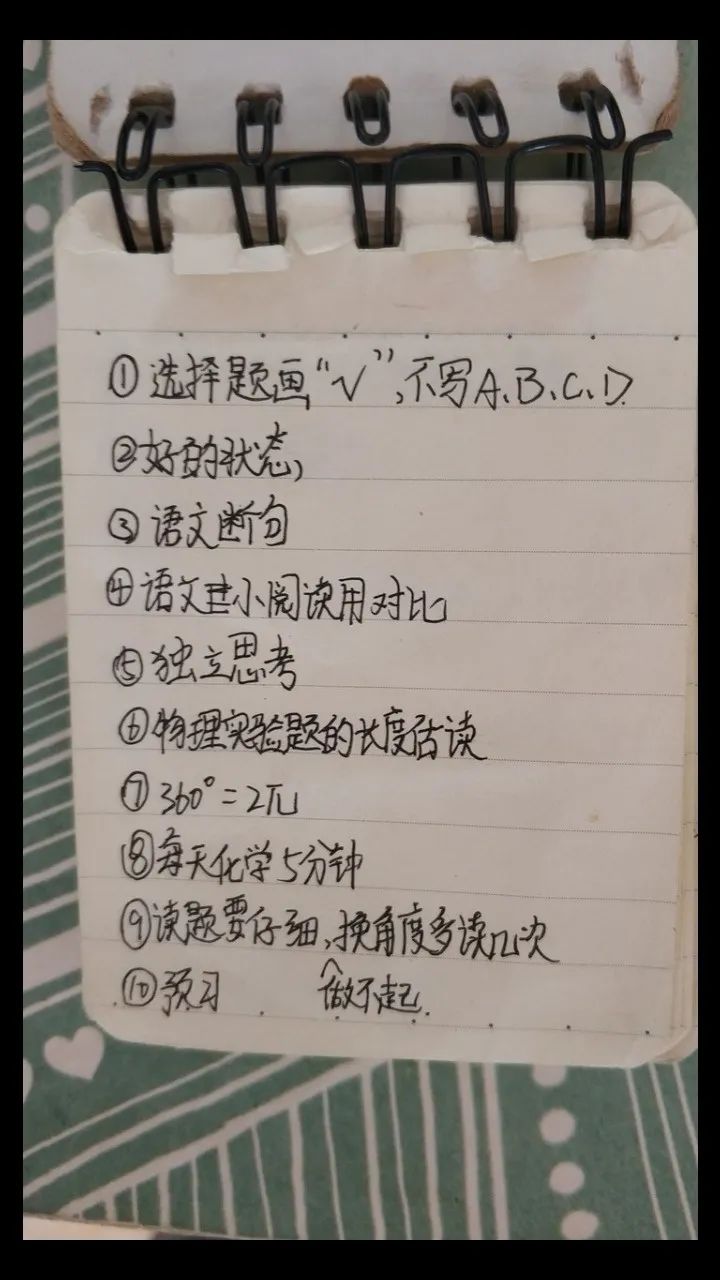 ①选择题画“√”,不写A、B、C、D.
②好的状态,
③语文断句
④语文小阅读用对比
⑤独立思考
⑥物理实验题的长度估读
⑦360°=2π
⑧每天化学5分钟
⑨读题要仔细,换角度多读几次
⑩预习 做不起.